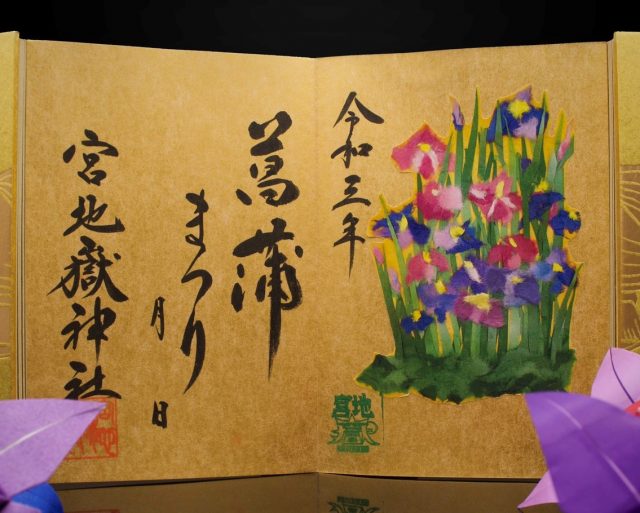 令和三年
菖蒲
まつり
月 日
宮地嶽神社
宮地嶽